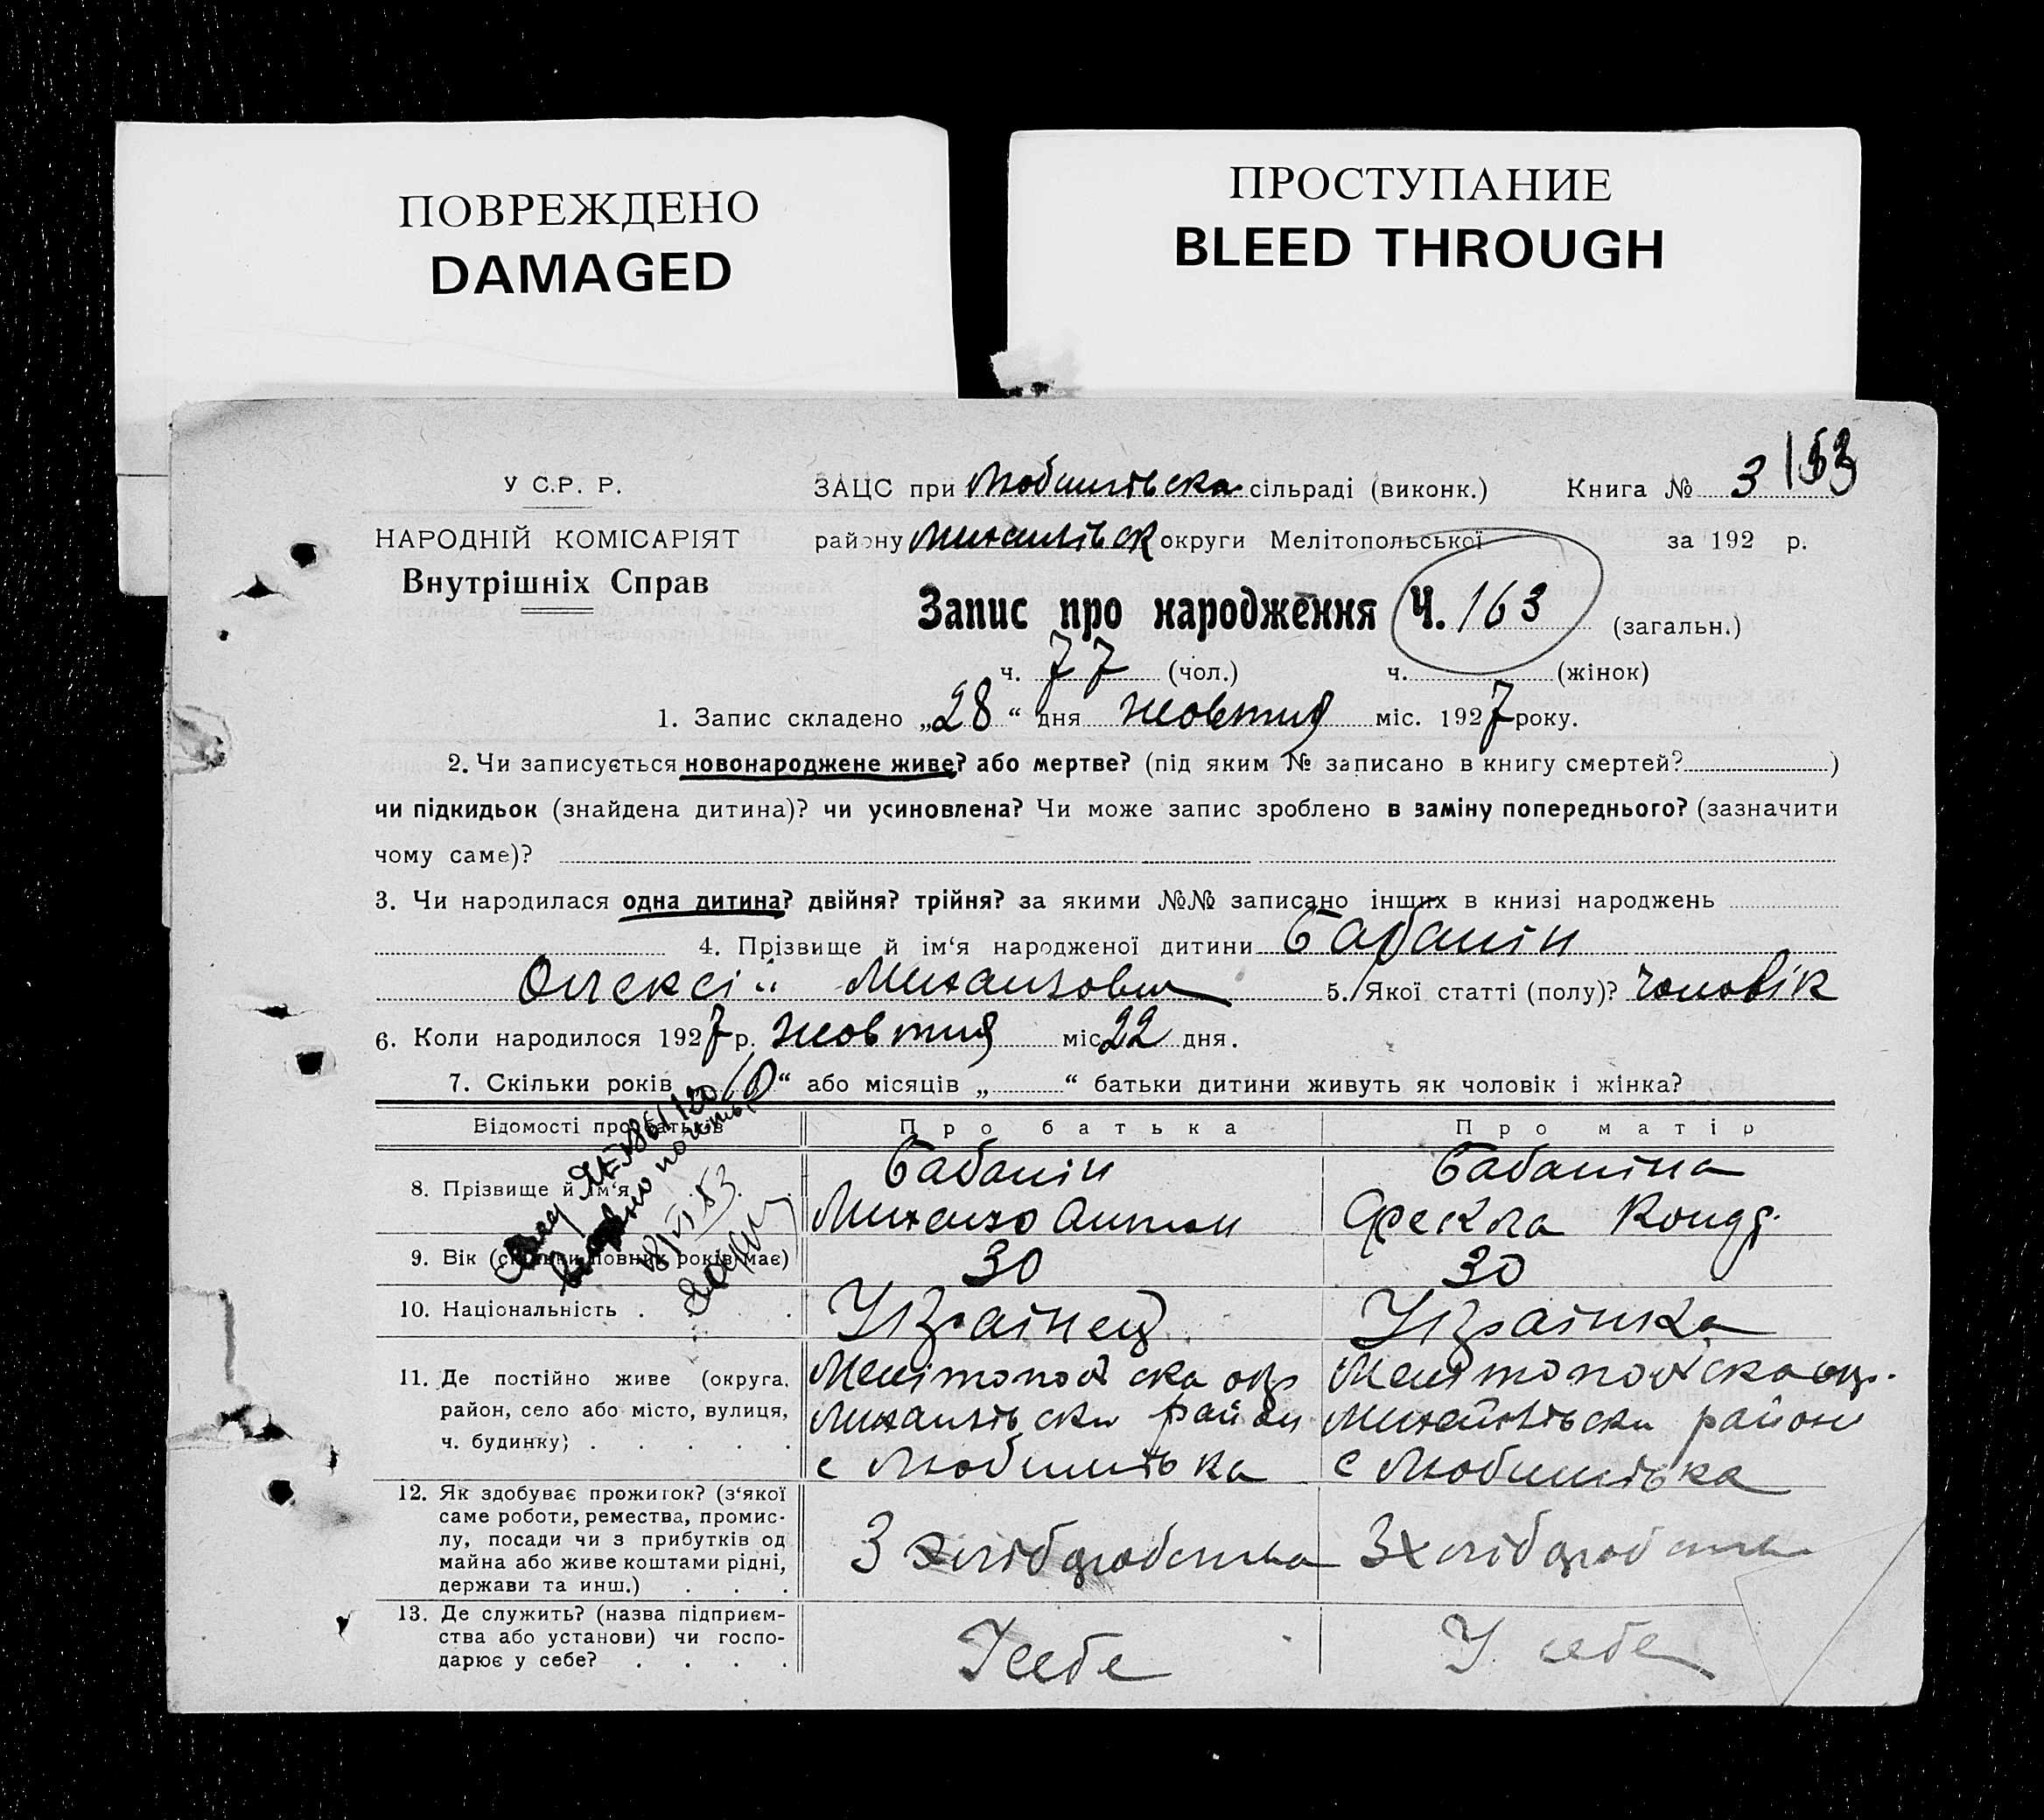 ПОВРЕЖДЕНО
DAMAGED
ПРОСТУПАНИЕ
BLEED THROUGH
У С.Р. Р.
НАРОДНІЙ КОМІСАРІЯТ
Внутрішніх Справ
ЗАЦС при Любимівска сільраді (виконк.) Книга № 3
району Михайлівск округи Мелітопольської за 192 р.
Запис про народження Ч. 163 (загальн.)
ч. 77 (чол.) ч. (жінок)
1. Запис складено „28“ дня жовтня міс. 1927 року.
2. Чи записується новонароджене живе? або мертве? (під яким № записано в книгу смертей? )
чи підкидьок (знайдена дитина)? чи усиновлена? Чи може запис зроблено в заміну попереднього? (зазначити
чому саме)?
3. Чи народилася одна дитина? двійня? трійня? за якими №№ записано інших в книзі народжень
4. Прізвище й ім‘я народженої дитини Бабанін
Олексій Михайлович 5. Якої статті (полу)? чоловік
6. Коли народилося 1927 р. жовтня міс 22 дня.
7. Скільки років 10“ або місяців „ “ батьки дитини живуть як чоловік і жінка?
Відомості про батьків Про батька Про матір
8. Прізвище й ім‘я Бабанін Бабаніна
Михайло Антон Фекла Кондр.
9. Вік (скільки повних років має) 30 30
10. Національність . . Українец Українка
11. Де постійно живе (округа, Мелітопольска окр Мелітопольска окр.
район, село або місто, вулиця, Михайлівски район Михайлівски район
ч. будинку) . . . . . с Любимівка с Любимівка
12. Як здобуває прожиток? (з‘якої
саме роботи, ремества, промис-
лу, посади чи з прибутків од З хлібдробства З хлібдробства
майна або живе коштами рідні,
держави та инш.) . . .
13. Де служить? (назва підприєм-
ства або установи) чи госпо- У себе У себе
дарює у себе? . . . .